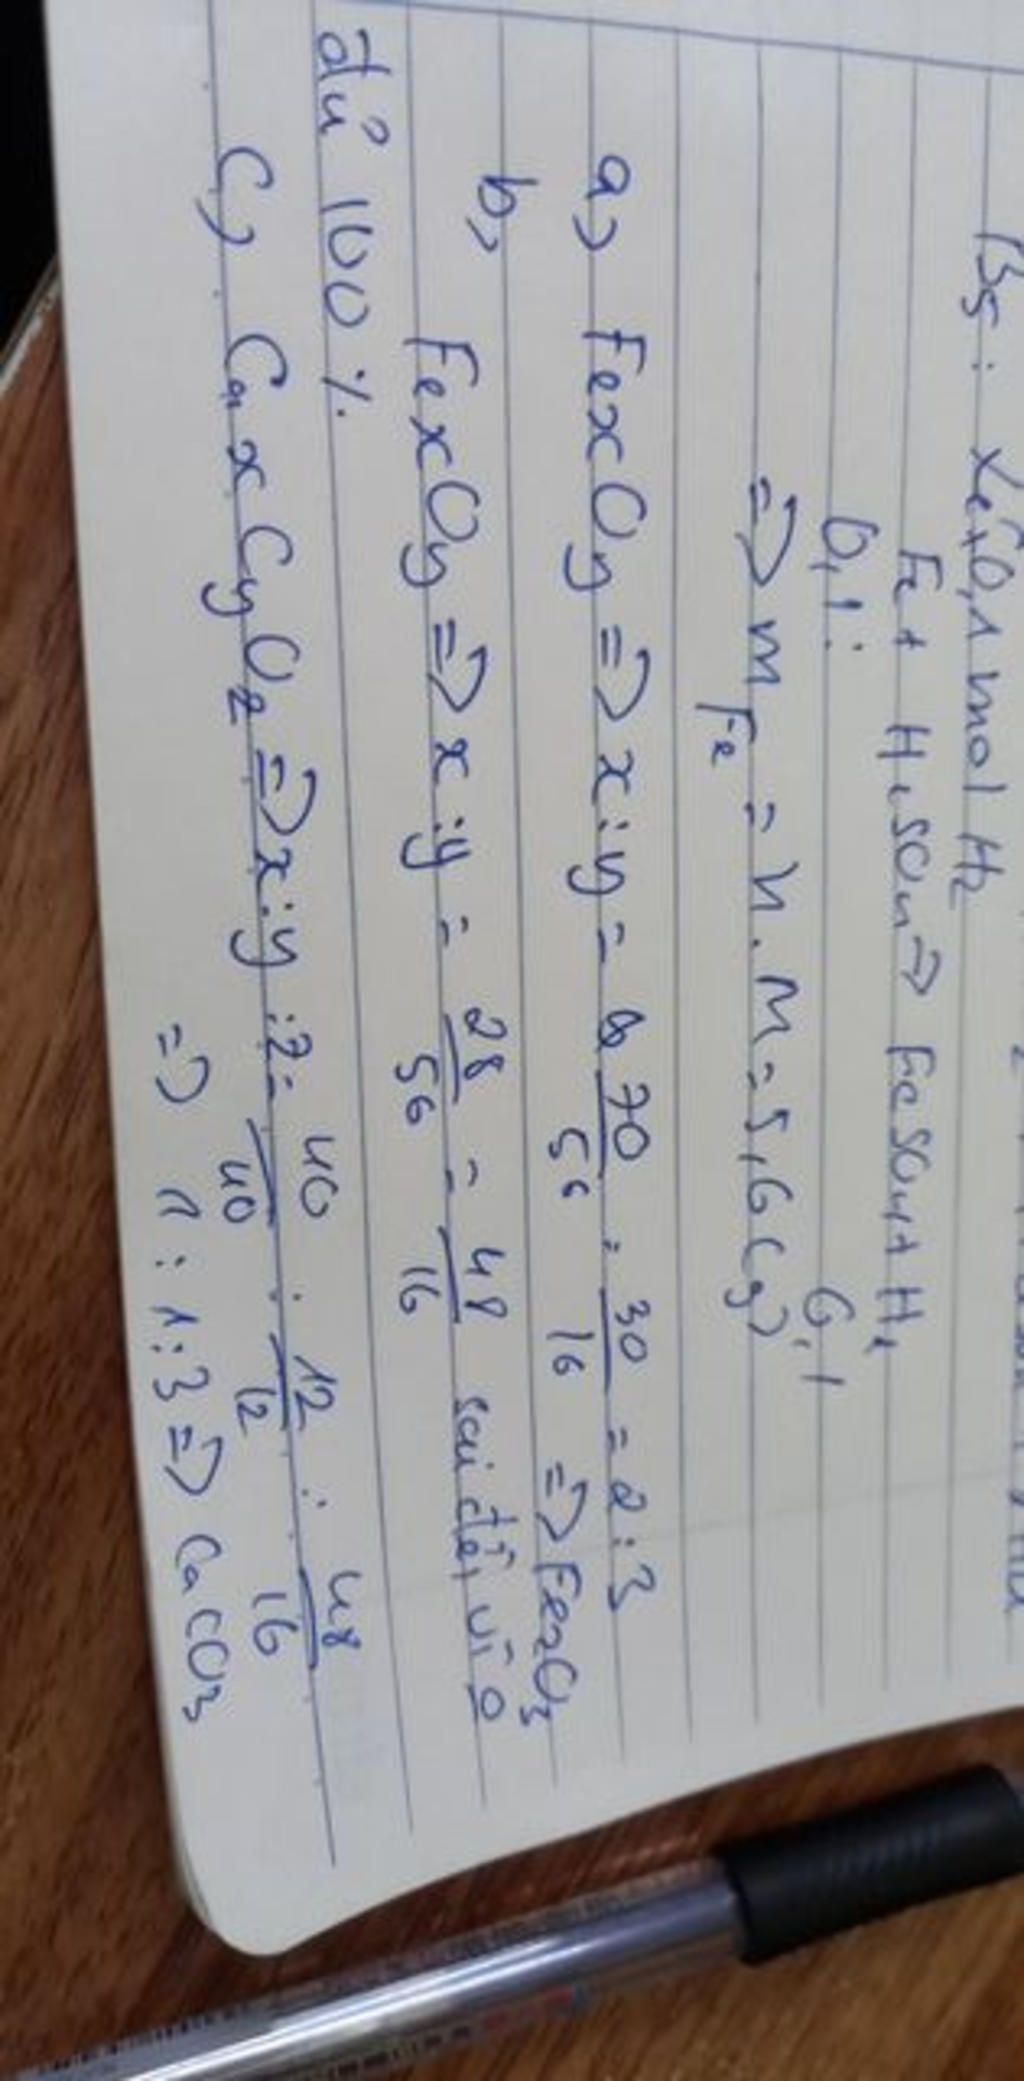 B5: xét 0,1 mol H2
Fe + H2SO4 → FeSO4 + H2
0,1: 0,1
=> mFe = n.M = 5,6 (g)
a) FexOy => x:y = 70/56 : 30/16 = 2:3
=> Fe2O3
b) FexOy => x:y = 28/56 = 48/16 sai đề, vì o
đủ 100%
C) CaxCyOz => x:y:z = 40/40 : 12/12 : 48/16
=> 1:1:3 => CaCO3